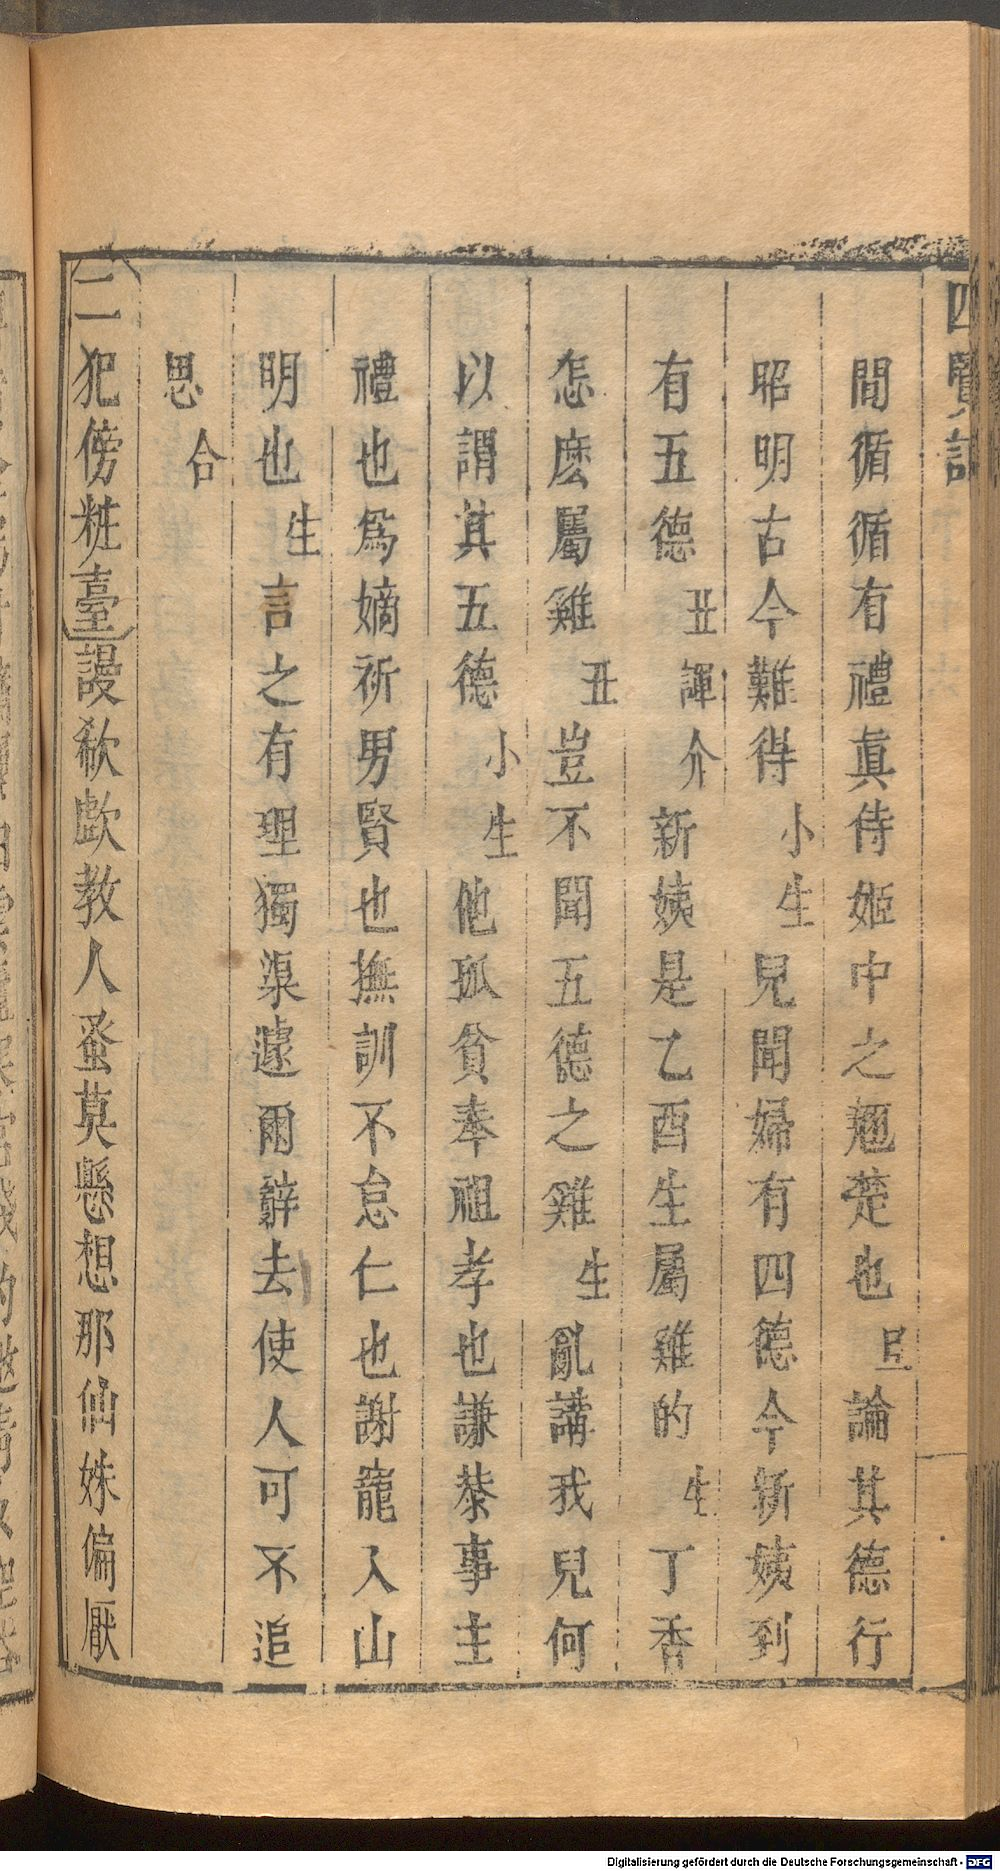 間循循有禮眞侍姬中之翹楚也旦論其德行
昭明古今難得小生兒聞婦有四德今新姨到
有五德丑諢介新姨是乙酉生屬雞的生丁香
怎麽屬雞丑豈不聞五德之雞生亂講我兒何
以謂其五德小生他孤貧奉祖孝也謙恭事主
禮也爲嫡祈男賢也撫訓不怠仁也謝寵入山
明也生言之有理獨渠遽爾辭去使人可不追
思合
二犯傍粧臺謾欷歔教人蚤莫懸想那仙姝偏厭
Digitalisierung gefördert durch die Deutsche Forschungsgemeinschaft - DFG